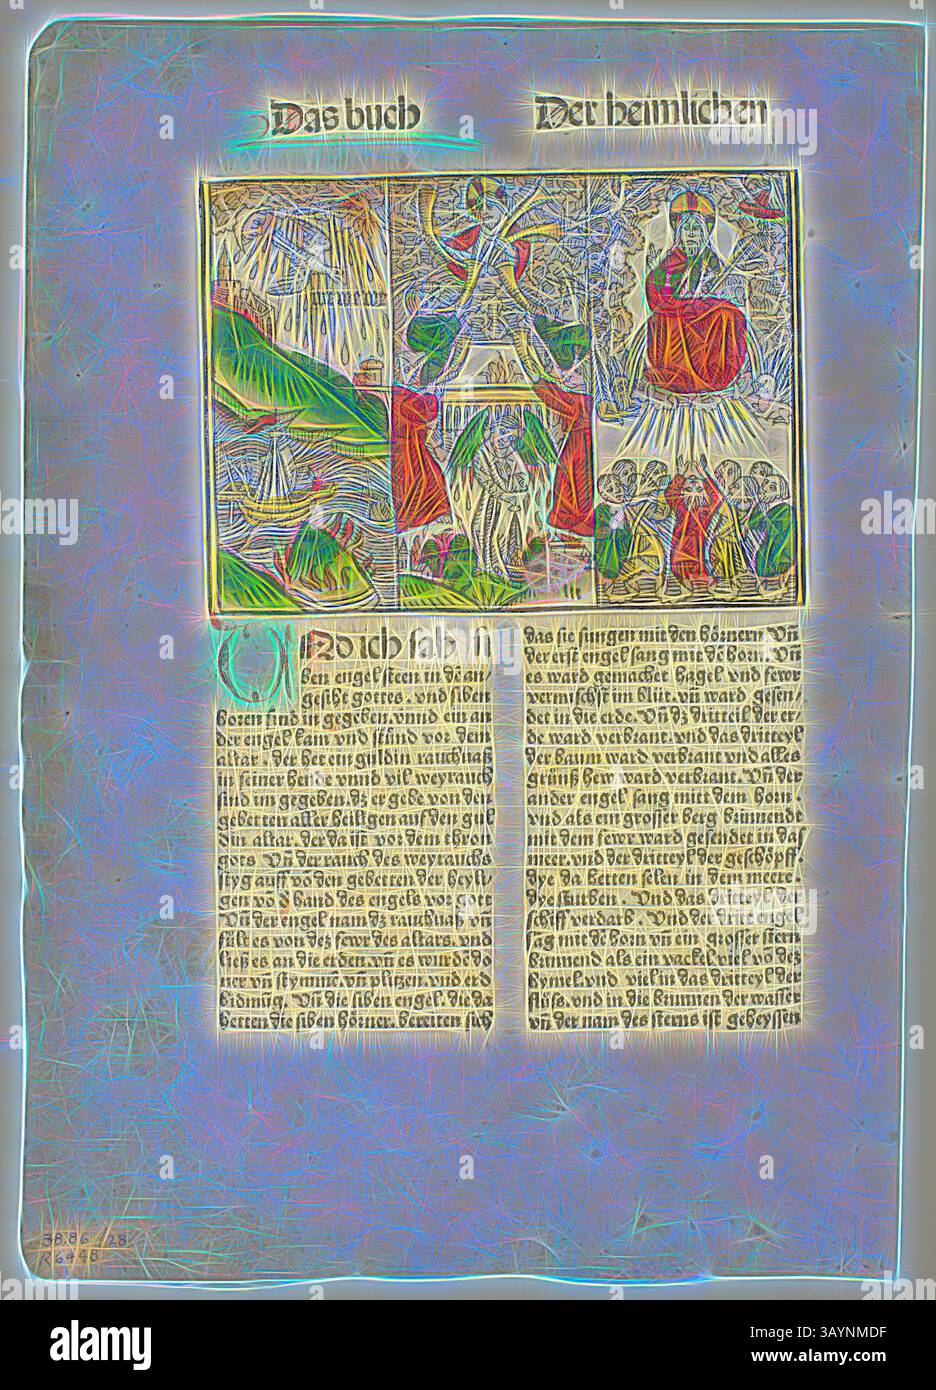 Das buch
Der heimlichen
we we we
UNd ich sah si
ben engel steen in dē an/
gesiht gottes. vnd siben
horen sind in gegeben. vnnd ein an
der engel kam vnd stůnd vor dem
altar. der het ein guldin rauchuaß
in seiner hende vnnd vil weyrauch
sind im gegeben. dz er gebe von den
gebetten aller heiligen auf den gul
din altar. der da ist vor dem thron
gots. Vñ der rauch des weyrauchs
styg auff võ den gebetten der heyli/
gen võ d hand des engels vor gott
Vñ der engel nam dz rauchuaß vñ
fült es von dez fewr des altars. vnd
ließ es an die erden. vñ es wurdē do
ner vñ stymme. vñ plitzen. vnd erd
bidmūg. Vñ die siben engel. die da
hetten die siben hörner. bereiten sich
das sie sungen mit den hörnern. Vñ
der erst engel sang mit dē horn. Vñ
es ward gemachet hagel vnd fewr
vermischst im blůt. vñ ward gesen/
det in die erde. Vñ dz dritteil der er/
de ward verbrant. vnd das dritteyl
der baum ward verbrant vnd alles
grünß hew ward verbrant. Vñ der
ander engel sang mitt dem horn.
vnd als ein grosser berg brinnendt
mit dem fewr ward gesendet in das
meer. vnd der dritteyl der geschöpff.
dye da hetten selen in dem meere.
dye sturben. Vnd das dritteyl der
schiff verdarb. Vnd der drit engel
sāg mit dē horn vñ ein grosser stern
brinnend als ein vackel viel võ dez
hymel. vnd viel in das dritteyl der
flüß. vnd in die brunnen der wasser
vñ der nam des sterns ist geheyssen
38.86 /28/
R6448
alamy
Image ID: 3AYNMDF
www.alamy.com